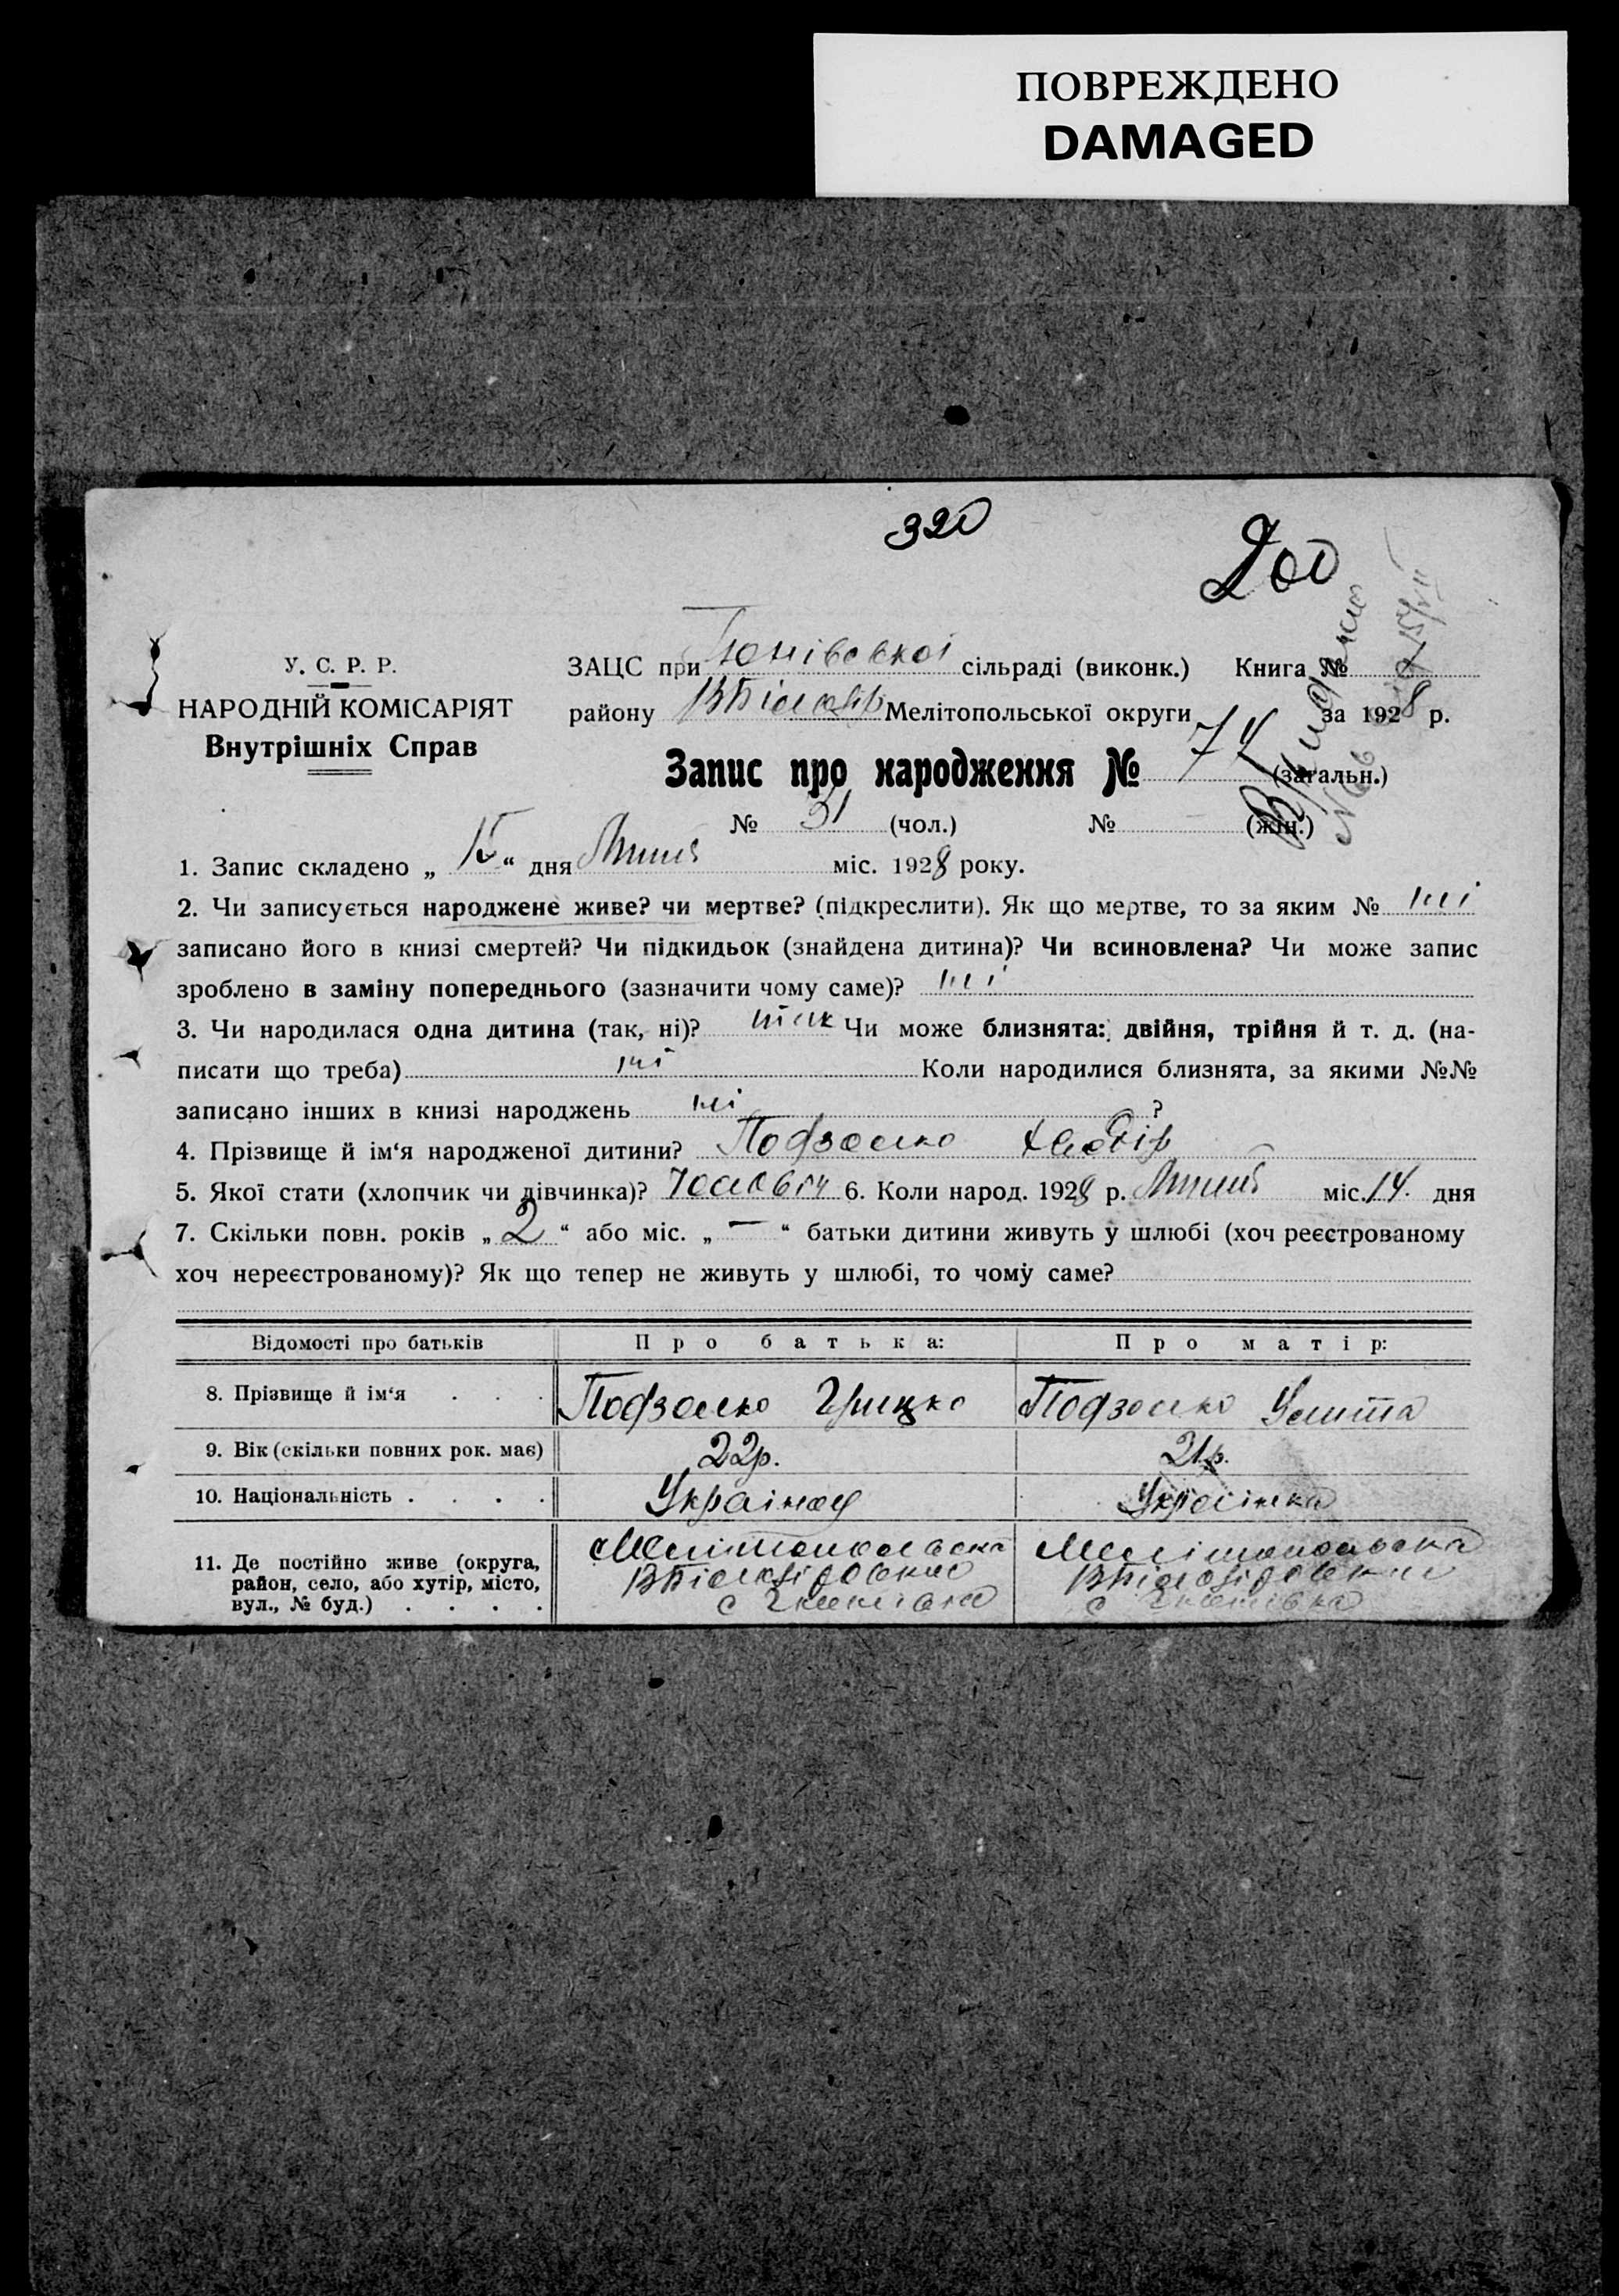 ПОВРЕЖДЕНО
DAMAGED
320
200
У. С. Р. Р.
НАРОДНІЙ КОМІСАРІЯТ
Внутрішніх Справ
ЗАЦС при сільраді (виконк.) Книга №
району Мелітопольської округи за 1928 р.
Запис про народження № 74 (загальн.)
№ 31 (чол.) № (жін.)
1. Запис складено „ 15 “ дня Липня міс. 1928 року.
2. Чи записується народжене живе? чи мертве? (підкреслити). Як що мертве, то за яким № ні
записано його в книзі смертей? Чи підкидьок (знайдена дитина)? Чи всиновлена? Чи може запис
зроблено в заміну попереднього (зазначити чому саме)? ні
3. Чи народилася одна дитина (так, ні)? так Чи може близнята: двійня, трійня й т. д. (на-
писати що треба) ні Коли народилися близнята, за якими №№
записано інших в книзі народжень ні ?
4. Прізвище й ім‘я народженої дитини?
5. Якої стати (хлопчик чи дівчинка)? 6. Коли народ. 1928 р. Липня міс. 14. дня
7. Скільки повн. років „ 2 “ або міс. „ — “ батьки дитини живуть у шлюбі (хоч реєстрованому
хоч нереєстрованому)? Як що тепер не живуть у шлюбі, то чому саме?
Відомості про батьків Про батька: Про матір:
8. Прізвище й ім‘я . . . Грицко
9. Вік (скільки повних рок. має) 22р. 21р.
10. Національність . . . . Українец Українка
11. Де постійно живе (округа, Мелітопольська Мелітопольська
район, село, або хутір, місто,
вул., № буд.) . . . . с с